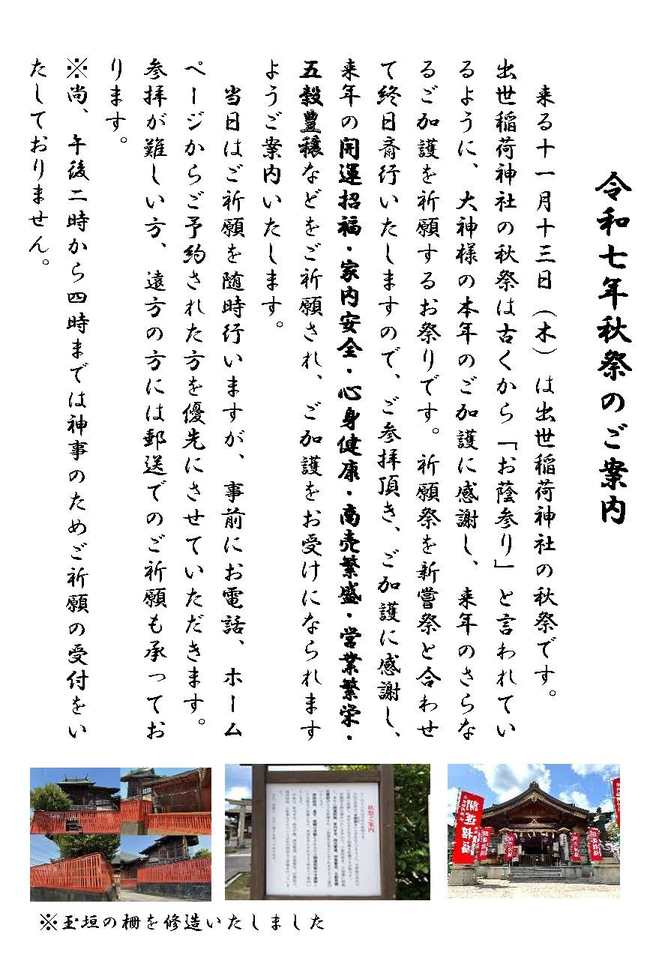 令和七年秋祭のご案内
来る十一月十三日（木）は出世稲荷神社の秋祭です。
出世稲荷神社の秋祭は古くから「お蔭参り」と言われてい
るように、大神様の本年のご加護に感謝し、来年のさらな
るご加護を祈願するお祭りです。祈願祭を新嘗祭と合わせ
て終日斎行いたしますので、ご参拝頂き、ご加護に感謝し、
来年の開運招福・家内安全・心身健康・商売繁盛・営業繁栄・
五穀豊穣などをご祈願され、ご加護をお受けになられます
ようご案内いたします。
当日はご祈願を随時行いますが、事前にお電話、ホーム
ページからご予約された方を優先にさせていただきます。
参拝が難しい方、遠方の方には郵送でのご祈願も承ってお
ります。
※尚、午後二時から四時までは神事のためご祈願の受付をい
たしておりません。
開運招福
※玉垣の柵を修造いたしました